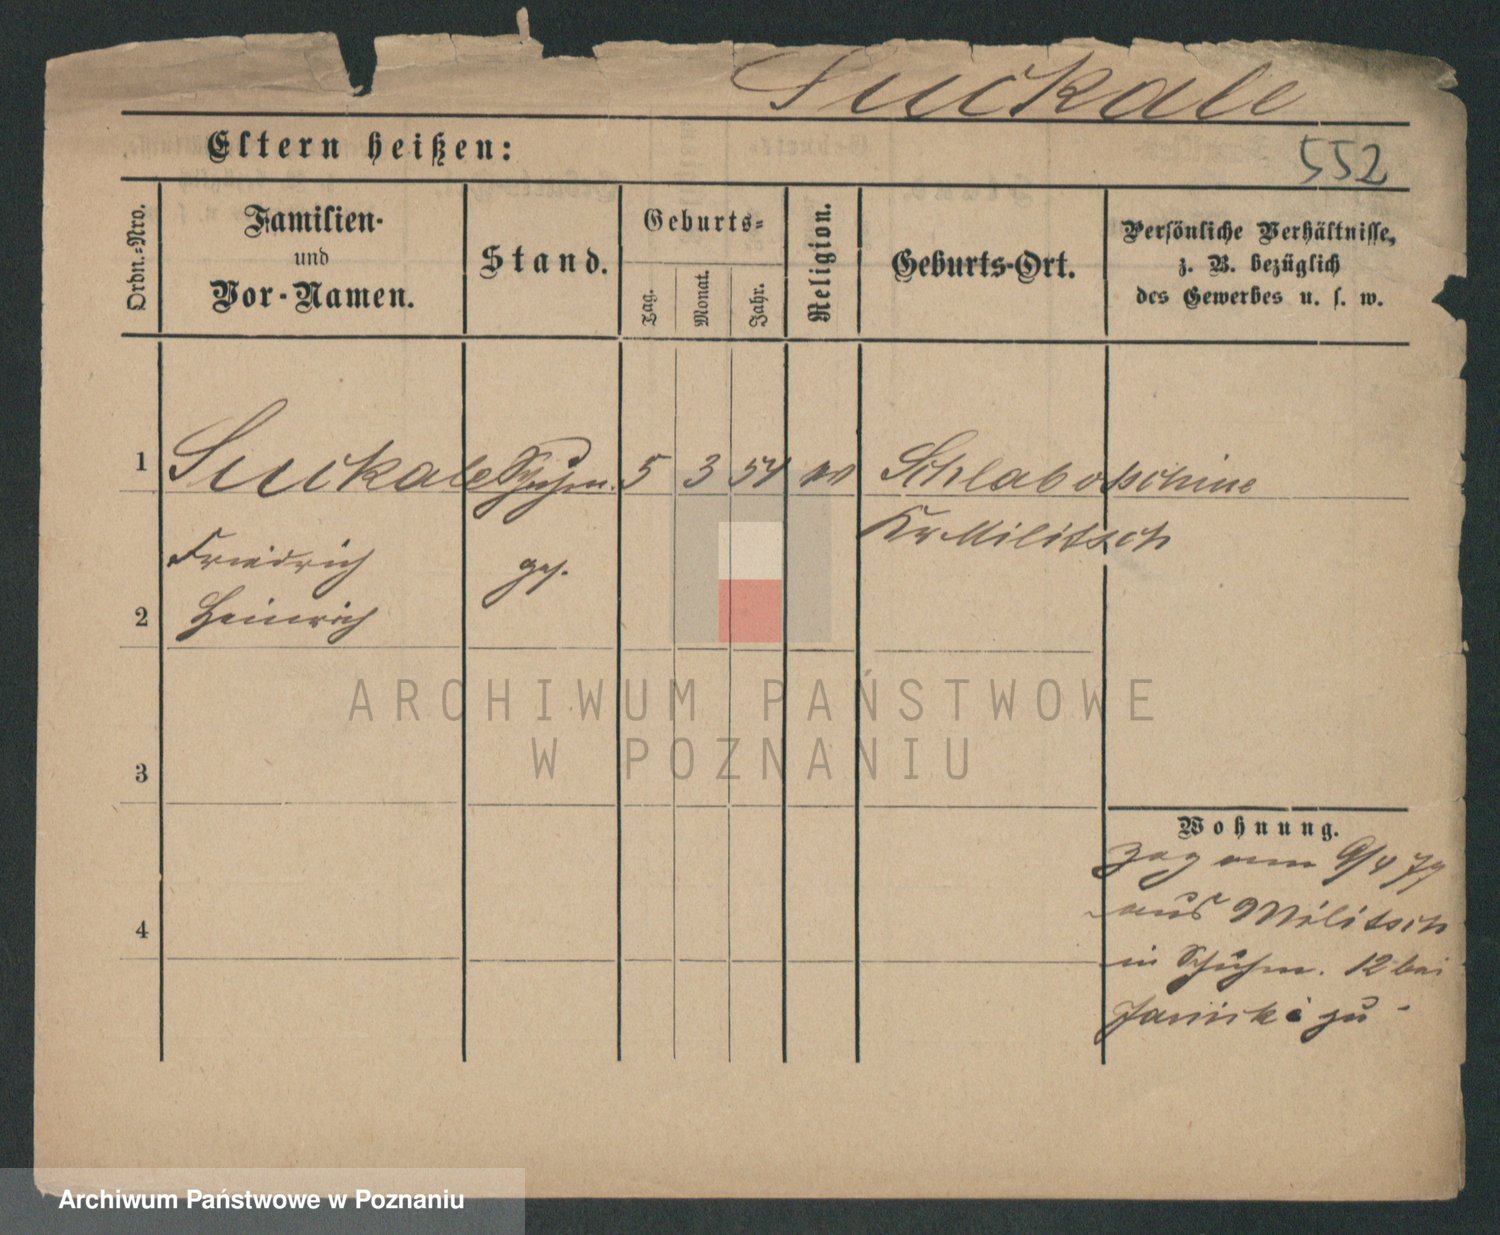 Suckale
Eltern heißen:
552
Ordn.-Nro.
Familien-
und
Vor-Namen.
Stand.
Geburts-
Tag.
Monat.
Jahr.
Religion.
Geburts-Ort.
Persönliche Verhältnisse,
z. B. bezüglich
des Gewerbes u. s. w.
1
Suckale Schuhm. 5 3 54 Schlabotschine
Kr Militsch
Friedrich
ges.
2
Heinrich
ARCHIWUM PAŃSTWOWE
W POZNANIU
3
4
Wohnung.
zog am 9/4 79
aus Militsch
in Schuhm. 12 bei
Janicki zu
Archiwum Państwowe w Poznaniu